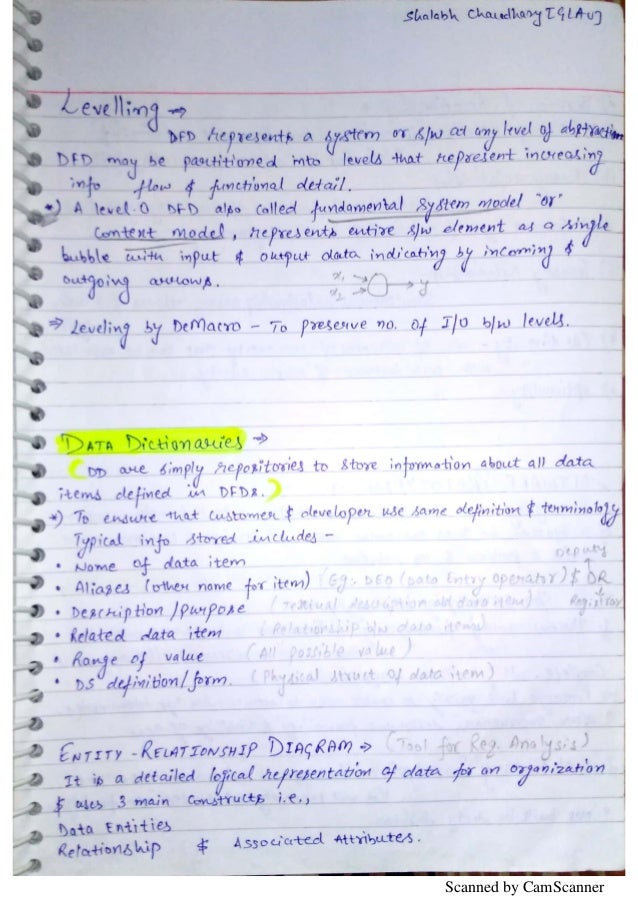 Shalabh Chaudhary [GLAU]
Levelling →
DFD represents a system or s/w at any level of abstraction
DFD may be partitioned into levels that represent increasing
info flow & functional detail.
*) A level-0 DFD also called fundamental system model "or"
Context model, represents entire s/w element as a single
bubble with input & output data indicating by incoming &
outgoing arrows.
x1
x2
y
⇒ Leveling by DeMacro - To preserve no. of I/O b/w levels.
DATA Dictionaries →
(DD are simply repositories to store information about all data
items defined in DFDs.)
*) To ensure that customer & developer use same definition & terminology
Typical info stored includes -
• Name of data item
• Aliases (other name for item) (Eg:- DEO (Data Entry operator) & DR
Deputy
Registrar
• Description / purpose (Textual description abt data item)
• Related data item (Relationship b/w data items)
• Range of value (All possible value)
• DS definition/form. (Physical struct of data item)
ENTITY-RELATIONSHIP DIAGRAM → (Tool for Req. Analysis)
It is a detailed logical representation of data for an organization
& uses 3 main constructs i.e.,
Data Entities
Relationship & Associated Attributes.
Scanned by CamScanner